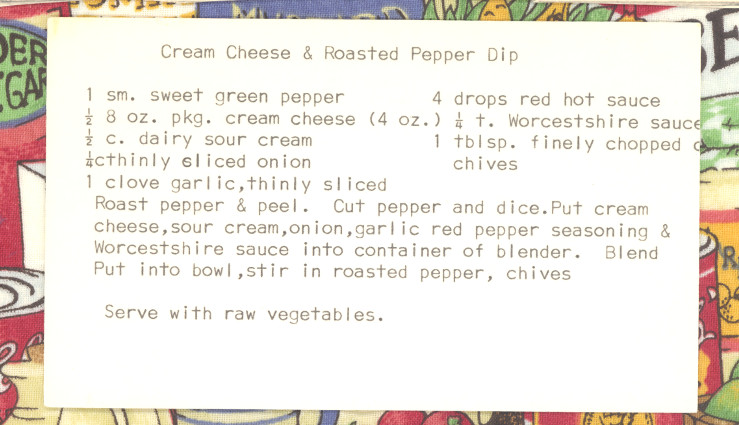 Cream Cheese & Roasted Pepper Dip
1 sm. sweet green pepper
½ 8 oz. pkg. cream cheese (4 oz.)
½ c. dairy sour cream
¼cthinly sliced onion
1 clove garlic,thinly sliced
4 drops red hot sauce
¼ t. Worcestshire sauce
1 tblsp. finely chopped
chives
Roast pepper & peel. Cut pepper and dice.Put cream
cheese,sour cream,onion,garlic red pepper seasoning &
Worcestshire sauce into container of blender. Blend
Put into bowl,stir in roasted pepper, chives
Serve with raw vegetables.